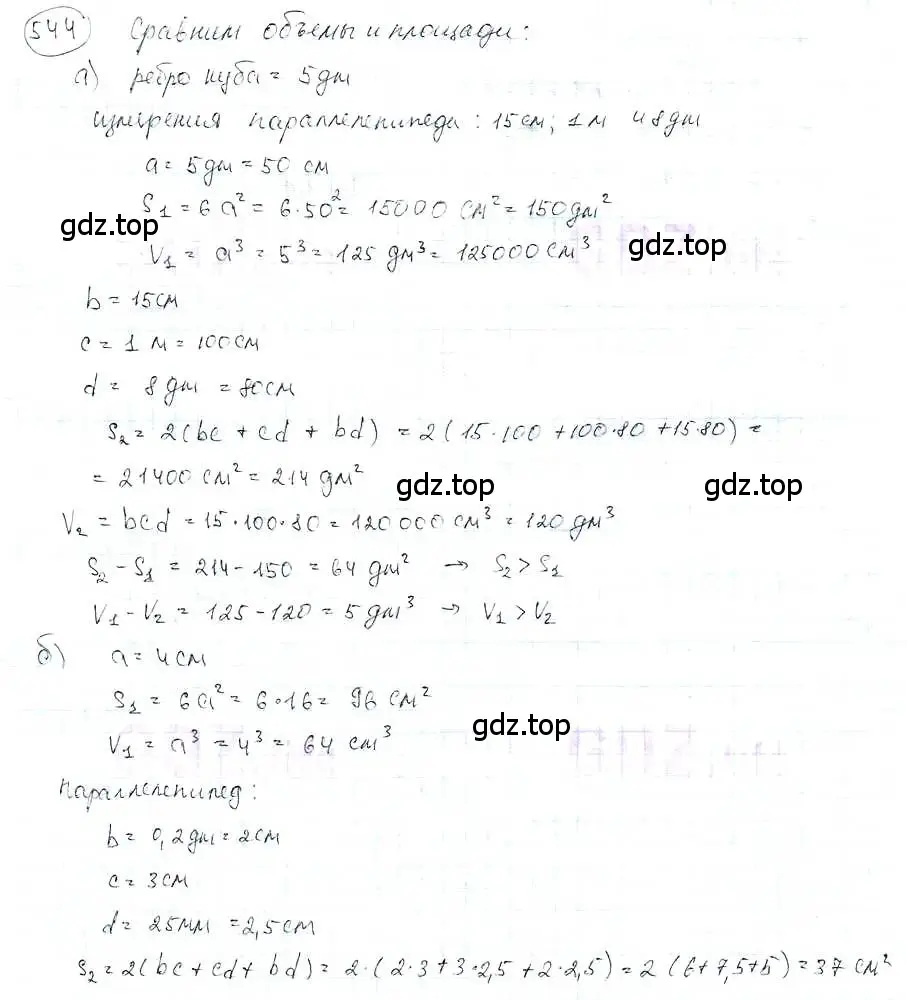 544 Сравним объемы и площади:
а) ребро куба = 5дм
измерения параллепипеда: 15см; 1м и 8дм
a = 5дм = 50 см
S₁ = 6a² = 6·50² = 15000 см² = 150дм²
gdz.top
gdz.top
V₁ = a³ = 5³ = 125 дм³ = 125000см³
b = 15см
c = 1 м = 100см
d = 8 дм = 80см
S₂ = 2(bc + cd + bd) = 2(15·100 + 100·80 + 15·80) =
= 21400 см² = 214 дм²
gdz.top
gdz.top
V₂ = bcd = 15·100·80 = 120 000 см³ = 120 дм³
S₂ - S₁ = 214 - 150 = 64 дм² → S₂ > S₁
V₁ - V₂ = 125 - 120 = 5 дм³ → V₁ > V₂
б) a = 4см
S₁ = 6a² = 6·16 = 96 см²
gdz.top
V₁ = a³ = 4³ = 64 см³
Параллелепипед:
b = 0,2дм = 2см
c = 3см
d = 25мм = 2,5см
S₂ = 2(bc + cd + bd) = 2·(2·3 + 3·2,5 + 2·2,5) = 2(6+7,5+5) = 37 см²